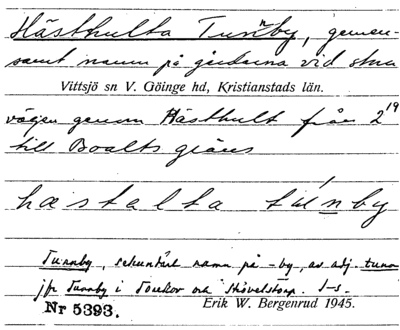 Hästhulta Tunnby, gemen-
samt namn på gårdarna vid stora
Vittsjö sn V. Göinge hd, Kristianstads län.
vägen genom Hästhult från 2 19
till Boalts gräns
hæstalta tunby
Tunnby, sekundärt namn på -by, av adj. tunn
jfr Tunnby i Torekov och Skivelstorp. I-s.
Nr 5393. Erik W. Bergenrup 1945.